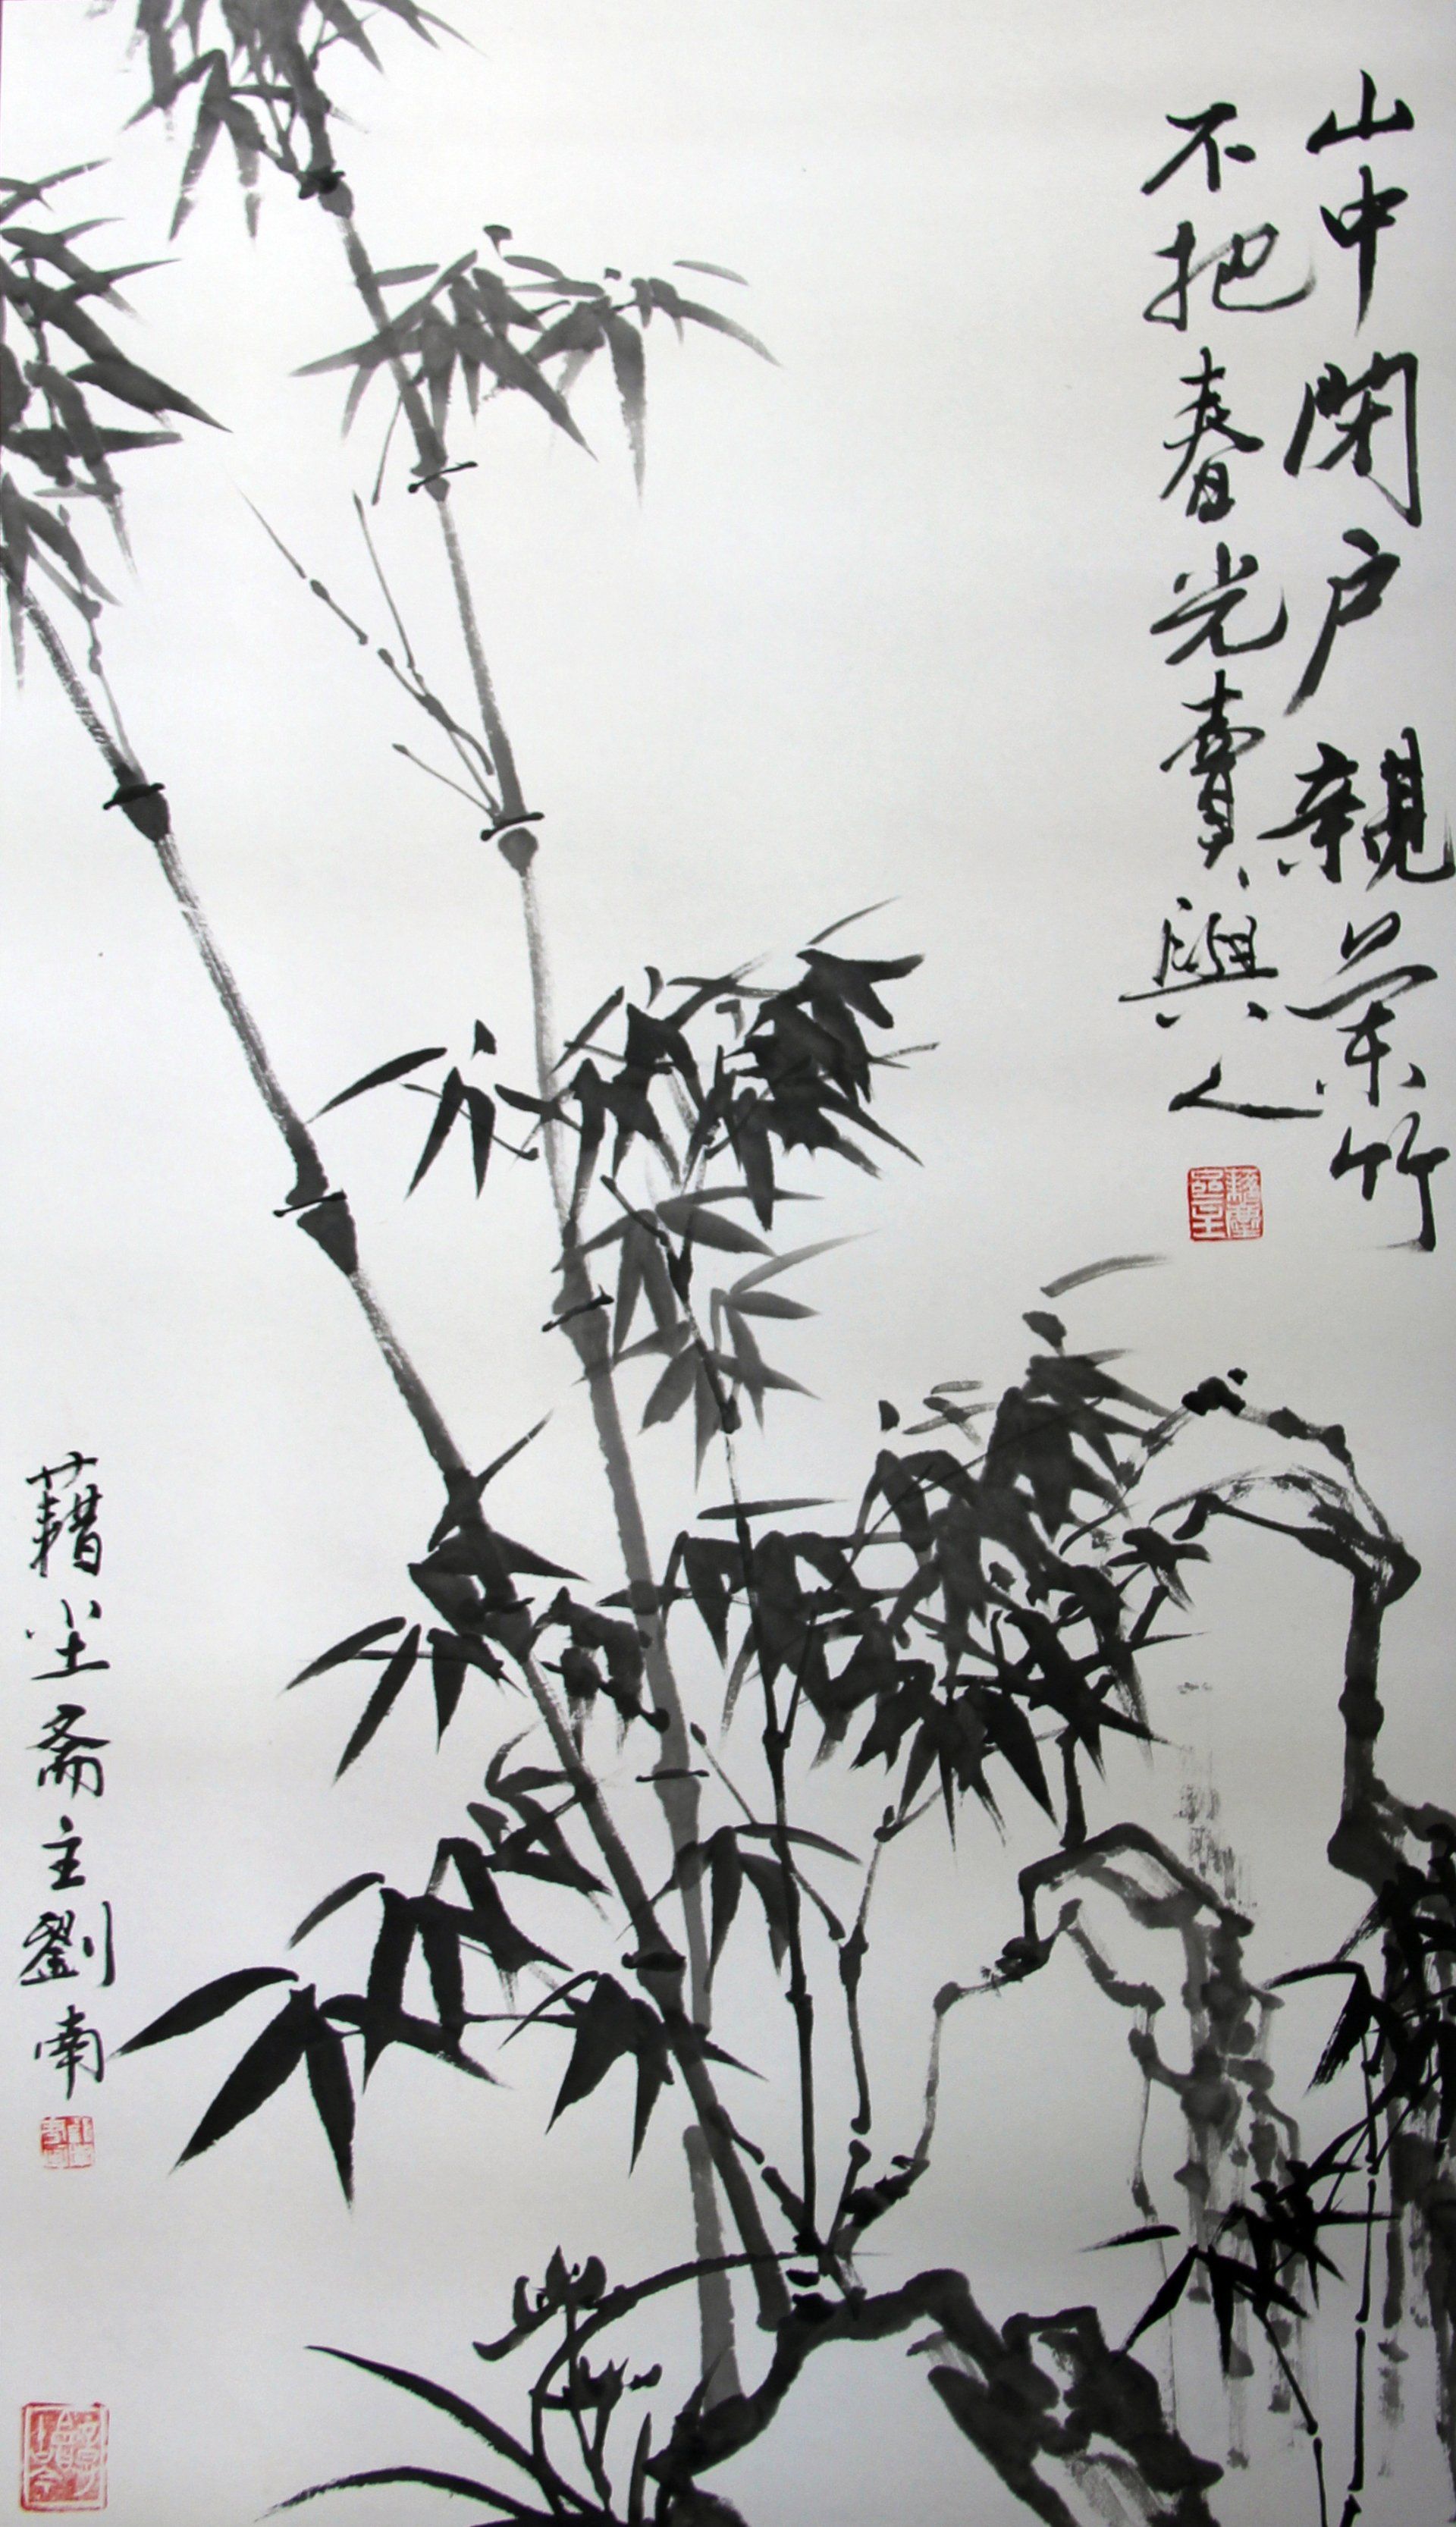 山中閉户親蘭竹
不把春光賣與人
藉尘斋主劉南